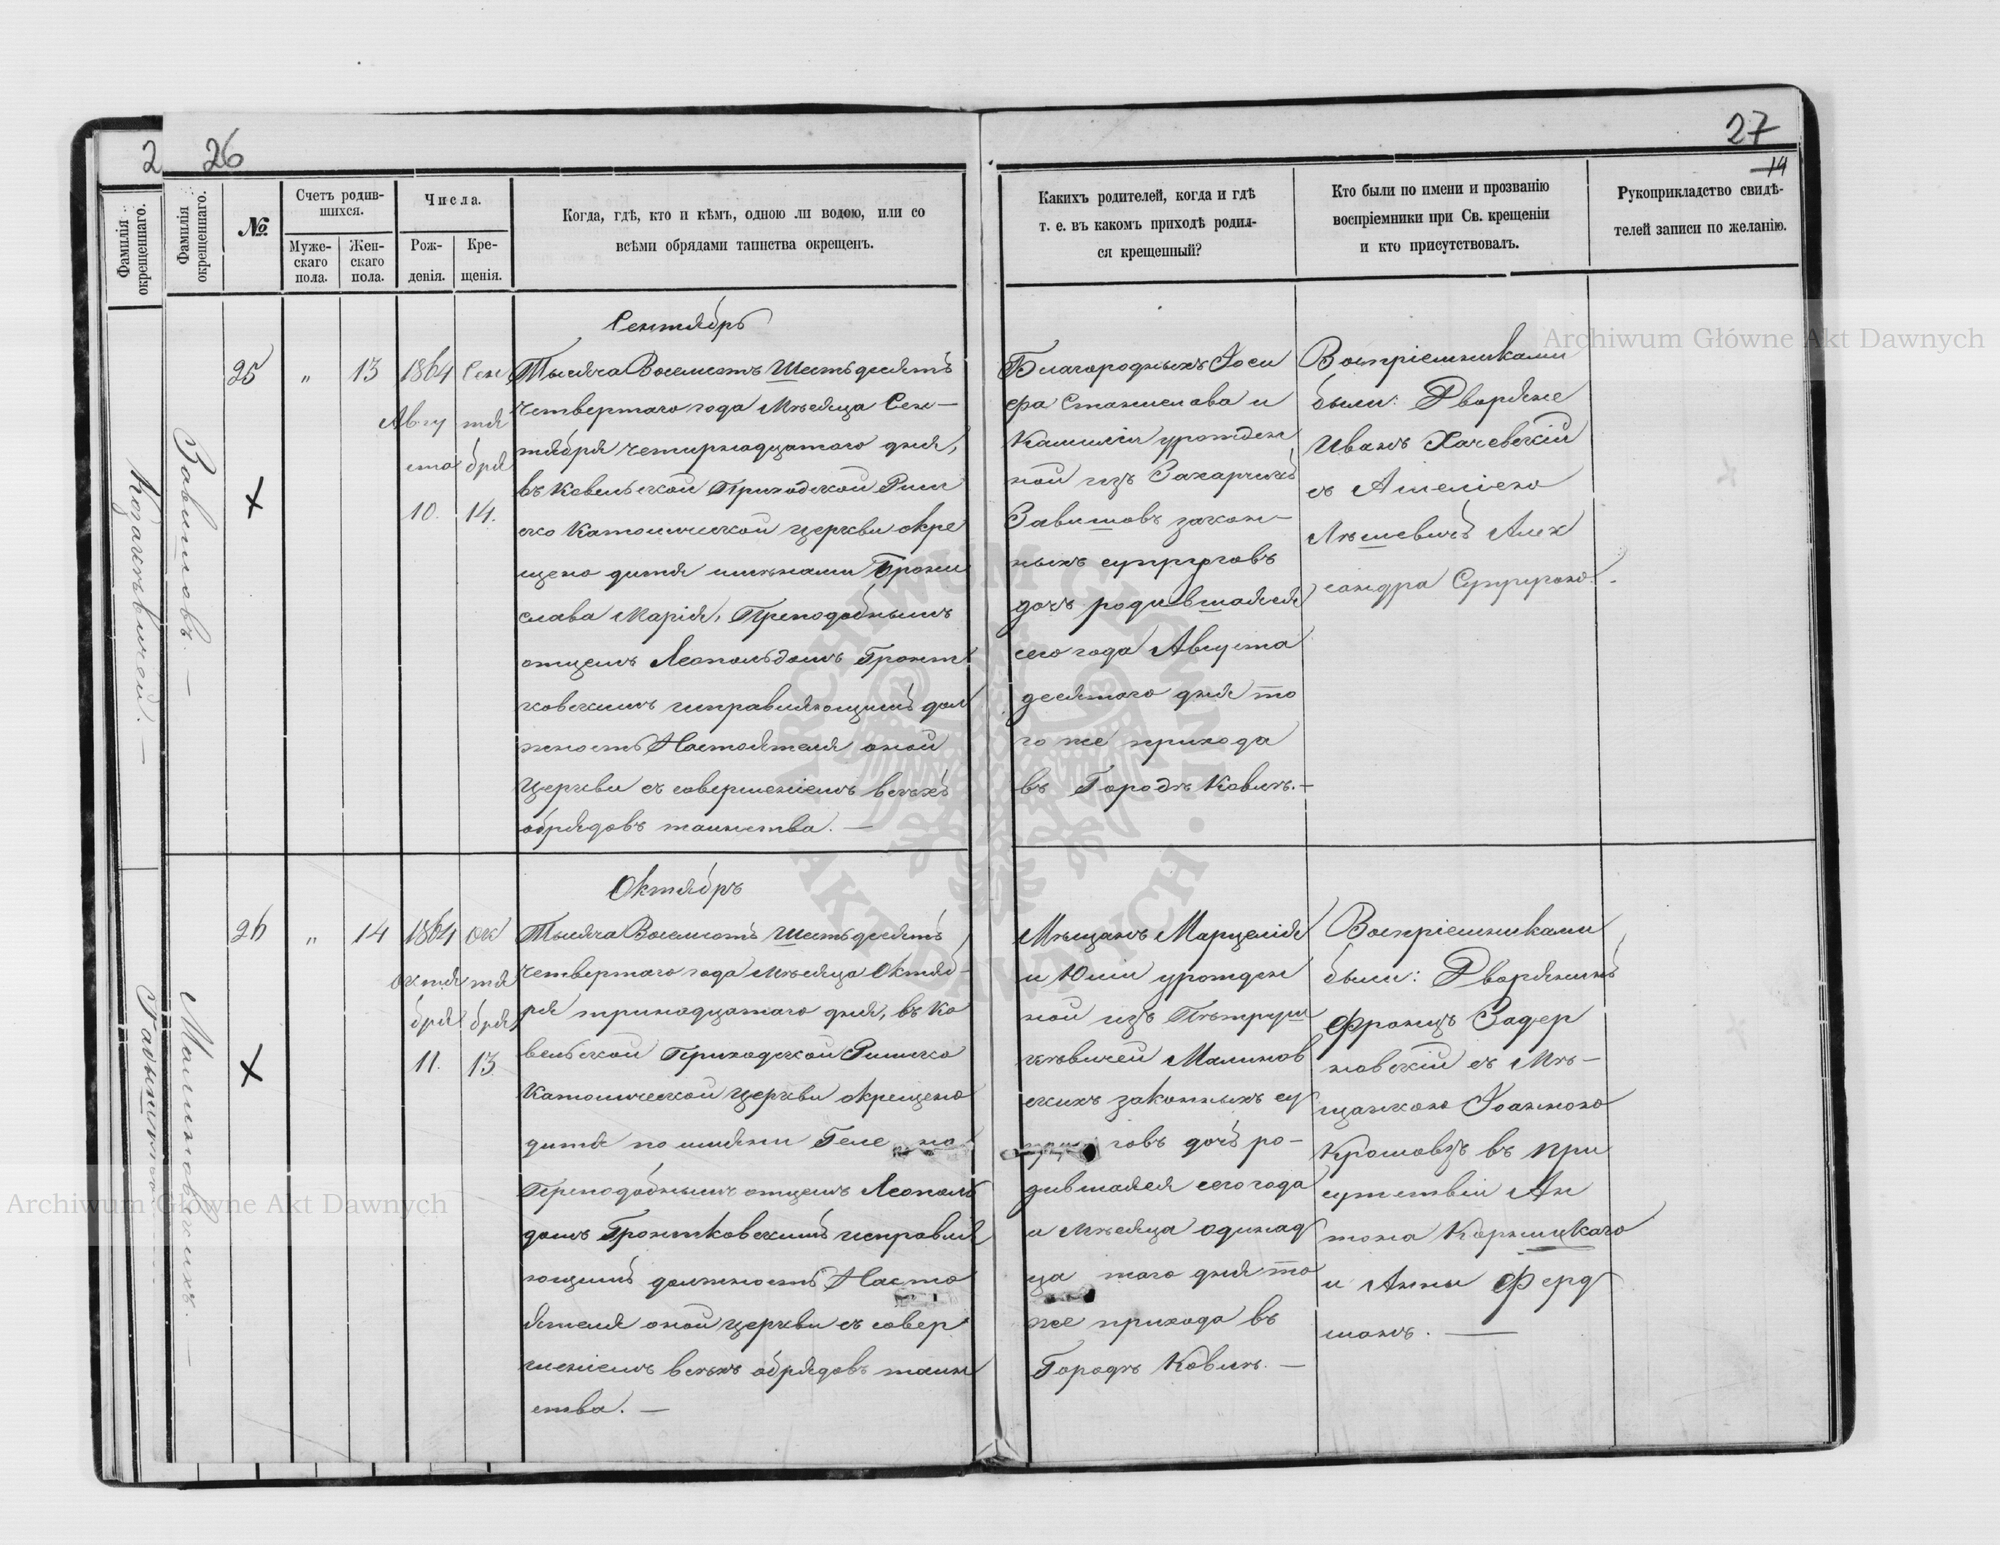 26
27
14
2
Фамилія окрещеннаго.
Фамилія окрещеннаго.
№
Счетъ родив-
шихся.
Муже-
скаго
пола.
Жен-
скаго
пола.
Числа.
Рож-
денія.
Кре-
щенія.
Когда, гдѣ, кто и кѣмъ, одною ли водою, или со
всѣми обрядами таинства окрещенъ.
Какихъ родителей, когда и гдѣ
т. е. въ какомъ приходѣ родил-
ся крещенный?
Кто были по имени и прозванію
воспріемники при Св. крещеніи
и кто присутствовалъ.
Рукоприкладство свидѣ-
телей записи по желанію.
Завишовъ. —
25
"
13
1864
Авгу
ста
10.
Сен
тя
бря
14.
Сентябрь
Тысяча Восемсотъ Шестьдесятъ
четвертаго года Мѣсяца Сен-
тября четырнадцатого дня,
въ Ковельской Приходской Рим
ско Католической церкви окре
щено дитя именами Брони
слава Марія, Преподобнымъ
отцемъ Леопольдомъ Гронт
ковскимъ исправляющимъ дол
жность Настоятеля оной
Церкви съ совершеніемъ всѣхъ
обрядовъ таинства. —
Благородныхъ Іоси
фа Станислава и
Камиліи урожден
ной изъ
Завишовъ закон-
ныхъ супруговъ
дочь родившаяся
сего года Августа
десятого дня то
го же прихода
въ Городѣ Ковлѣ. —
Воспріемниками
были: Дворяне
Иванъ
съ Амеліею
Алек
сандра Супругою. -
Малиновскихъ. —
26
"
14
1864
Октя
бря
11.
Ок
тя
бря
13
Октябрь
Тысяча Восемсотъ Шестьдесятъ
четвертаго года Мѣсяца Октяб-
ря тринадцатаго дня, въ Ко
вельской Приходской Римско
Католической церкви окрещено
дитя по имяни Геле на
Преподобнымъ отцемъ Леополь
домъ Гронтковскимъ исправля
ющимъ должность Насто
ятеля оной церкви съ совер
шеніемъ всѣхъ обрядовъ таин
ства. —
Мѣщанъ Марцелія
и Юліи урожден
ной изъ Пѣтруш
кѣвичей Малинов
скихъ законныхъ су
говъ дочь ро-
дившаяся сего года
и Мѣсяца одинад
ца того дня то
же прихода въ
Городѣ Ковлѣ. —
Воспріемниками
были: Дворянинъ
Францъ Задер
новскій съ Мѣ-
щанкою Іоанною
въ при
сутствіи Ан
тона Корницкаго
и Анны Ферд
манъ. —
Archiwum Główne Akt Dawnych
Archiwum Główne Akt Dawnych
ARCHIWUM GŁÓWNE · AKT DAWNYCH ·